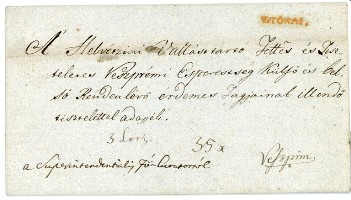 V.TÓKAI.
A' Helvetziai Vallástartó Tettes és Tisz
teletes Veszprémi Esperestség Külső és bel
ső Rendenlévő érdemes Tagjainak illendő
tisztelettel adassék.
3 Loth 35 x
a Superintendentiális Fő-Curatortól
Veszprim